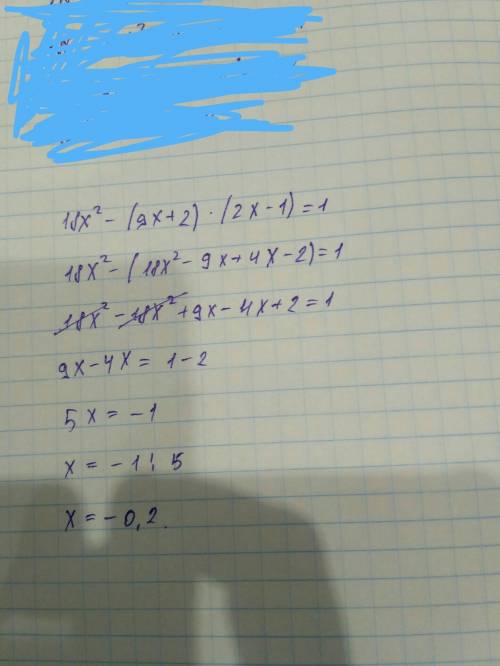 18x² - (9x+2) · (2x-1)=1
18x² - (18x² - 9x+4x-2)=1
18x² - 18x² +9x-4x+2=1
9x-4x = 1-2
5x = -1
x = -1 : 5
x = -0,2.